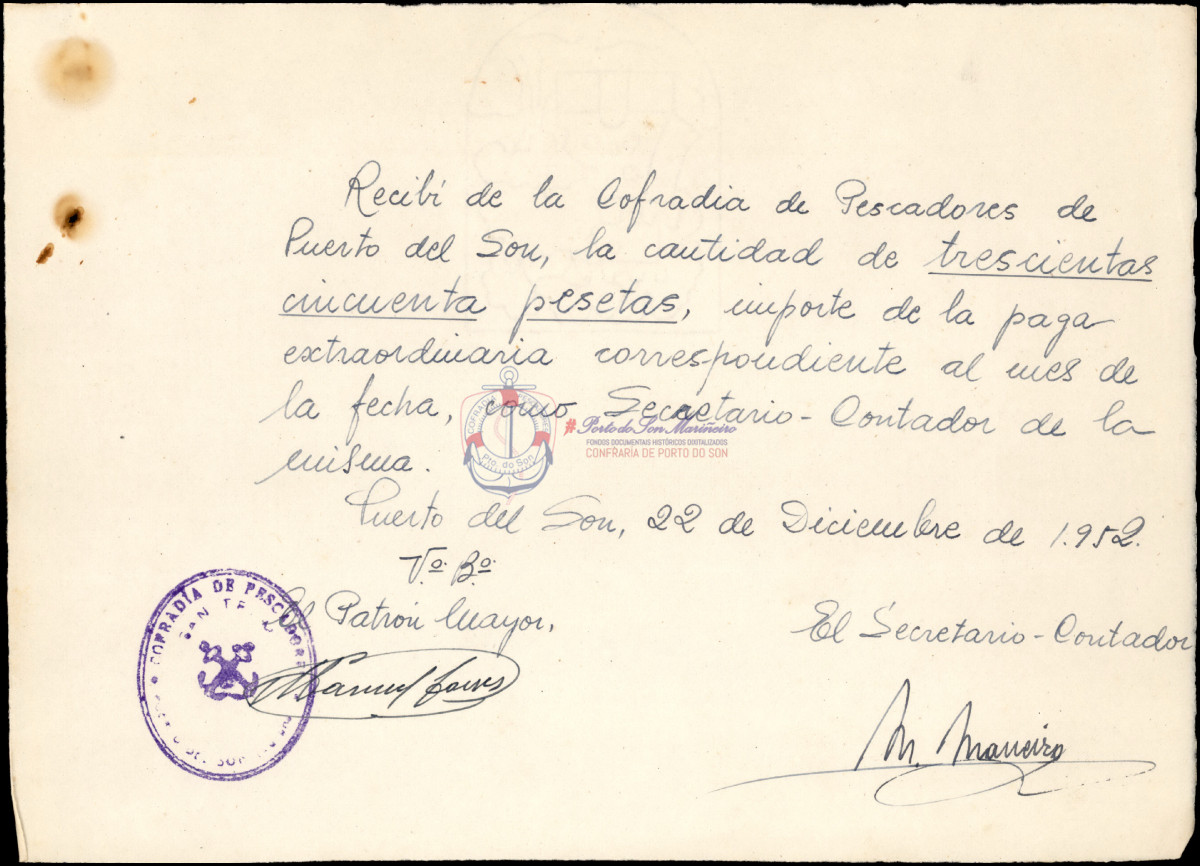 Recibí de la Cofradia de Pescadores de
Puerto del Son, la cantidad de trescientas
cincuenta pesetas, importe de la paga
extraordinaria correspondiente al mes de
la fecha, como Secretario-Contador de la
misma.
Puerto del Son, 22 de Diciembre de 1.952.
Vº Bº
El Patrón Mayor,
El Secretario-Contador
Manuel
M. Maneiro
COFRADIA DE PESCADORES
SAN TELMO
DEL SON
COFRADIA
Pto. do Son
#PortodoSonMariñeiro
FONDOS DOCUMENTAIS HISTÓRICOS DIXITALIZADOS
CONFRARÍA DE PORTO DO SON